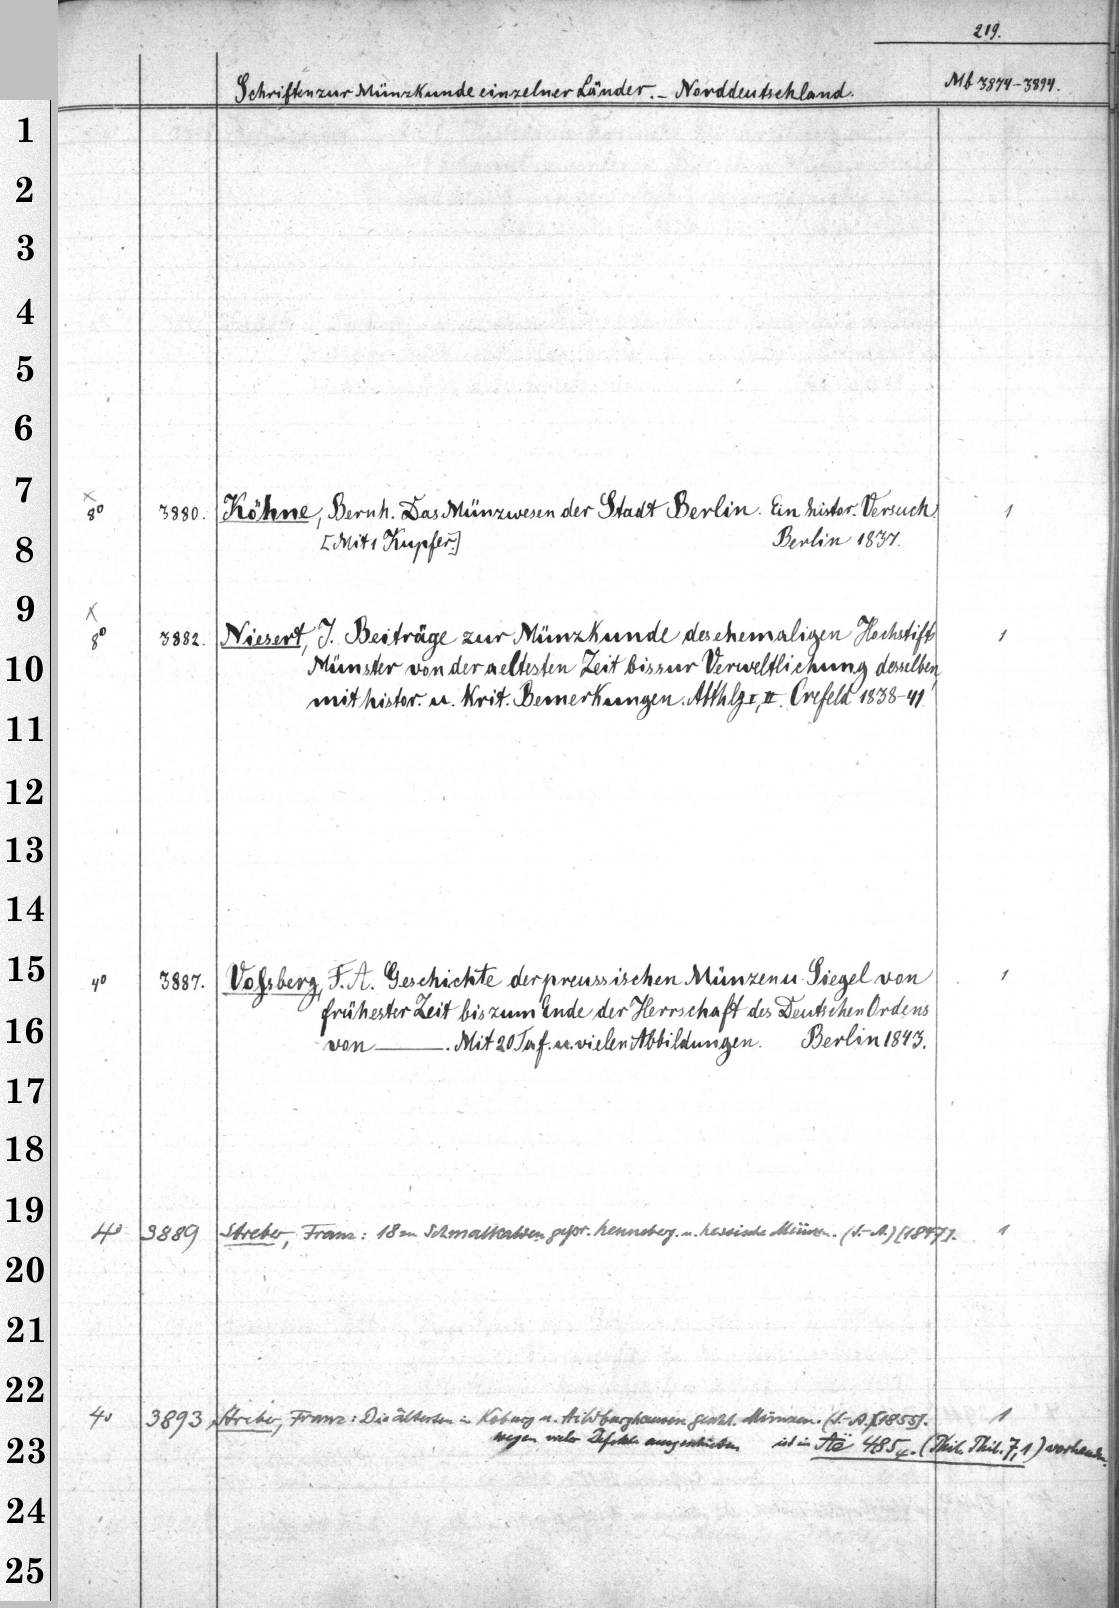 219.
Schriften zur Münzkunde einzelner Länder. – Norddeutschland.
Mb 3874–3894.
1
2
3
4
5
6
7
x
8° 3880. Köhne, Bernh. Das Münzwesen der Stadt Berlin. Ein histor. Versuch. 1
8
[Mit 1 Kupfer.] Berlin 1837.
9
x
8° 3882. Niesert, J. Beiträge zur Münzkunde des ehemaligen Hochstifts 1
10
Münster von der aeltesten Zeit bis zur Verweltlichung desselben,
mit histor. u. Krit. Bemerkungen. Abthlg I, II. Crefeld 1838–41
11
12
13
14
15
4° 3887. Voßberg, F. A. Geschichte der preussischen Münzen u. Siegel von 1
frühester Zeit bis zum Ende der Herrschaft des Deutschen Ordens
16
von ——. Mit 20 Taf. u. vielen Abbildungen. Berlin 1843.
17
18
19
4° 3889 Streber, Franz: 18 in Schmalkalden gepr. henneberg. u. hessische Münzen. (S.-A.) [1847]. 1
20
21
22
4° 3893 Streber, Franz: Die ältesten in Koburg u. Hildburghausen Münzen. (S.-A.) [1855]. 1
wegen vieler Defekte ausgeschieden ist in Aë 485 4. (Phil. Phil. 7,1) vorhanden.
23
24
25